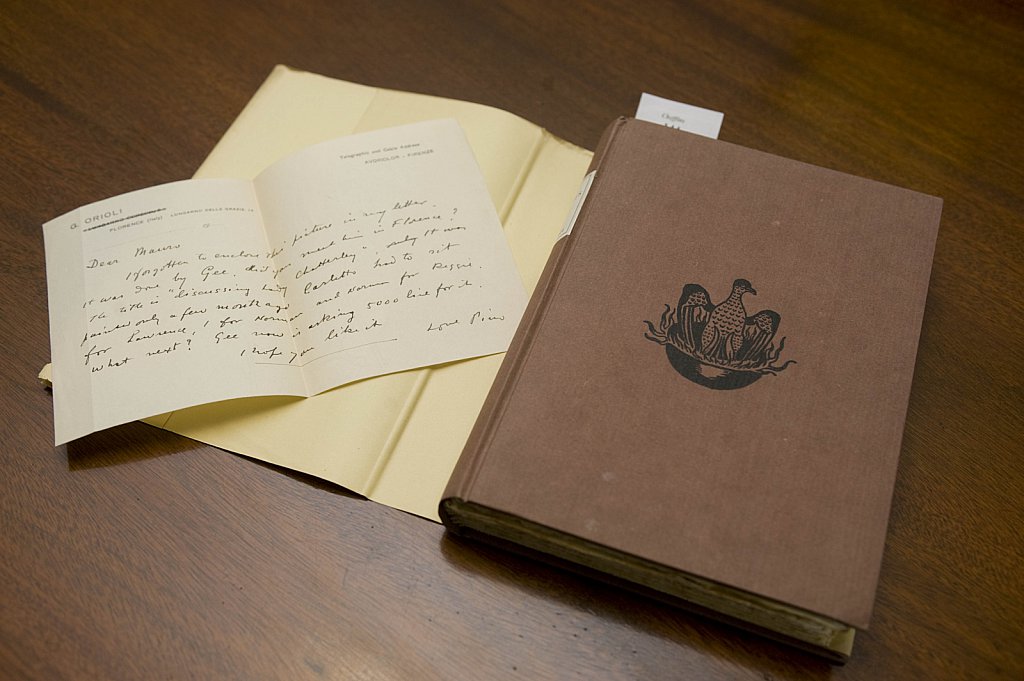 G. ORIOLI
LUNGARNO DELLE GRAZIE
FLORENCE (Italy)
Telegraphic and Cable Address
FIRENZE
Dear Mauro
I forgotten to enclose this picture in my letter.
It was done by Gee. did you meet him in Florence?
The title is "discussing Lady Chatterley". only It was
painted only a few months ago Carletto had to sit
for Lawrence, I for Norman and Norman for Reggie.
What next? Gee now is asking 5000 lire for it.
I hope you like it
Love Pino